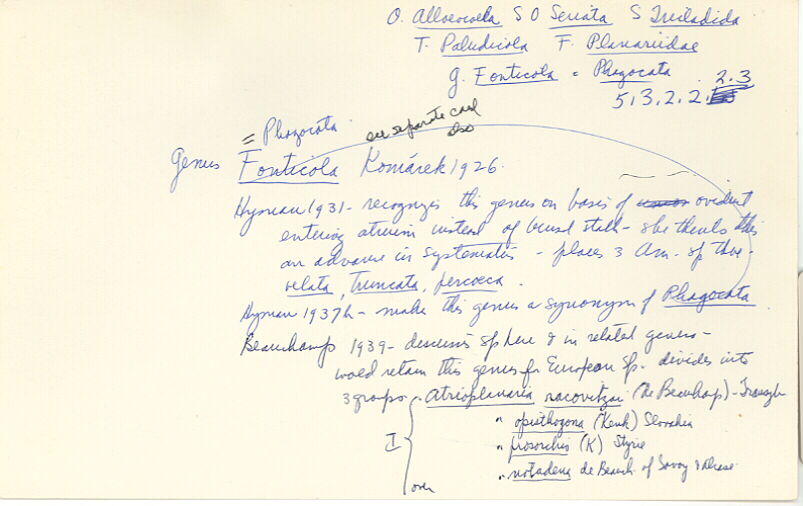 O. Alloeocoela S O Seriata S Tricladida
T. Paludicola F. Planariidae
g. Fonticola = Phagocata
2.3
5.3.2.2.
= Phagocata see separate card also
Genus Fonticola Komárek 1926.
Hyman 1931 - recognizes this genus on basis of oviduct
entering atrium instead of bursal stalk - she thinks this
an advance in systematics - places 3 Am. sp there -
velata, truncata, percoeca.
Hyman 1937b - makes this genus a synonym of Phagocata
Beauchamp 1939 - discusses sp here & in related genera -
would retain this genus for European sp. divides into
3 groups - Atrioplanaria racovitzai (de Beauchamp) -
" opisthogona (Kenk) Slovakia
I " prosorchis (K) Styrie
" notadena de Beauch. of Savoy &
over